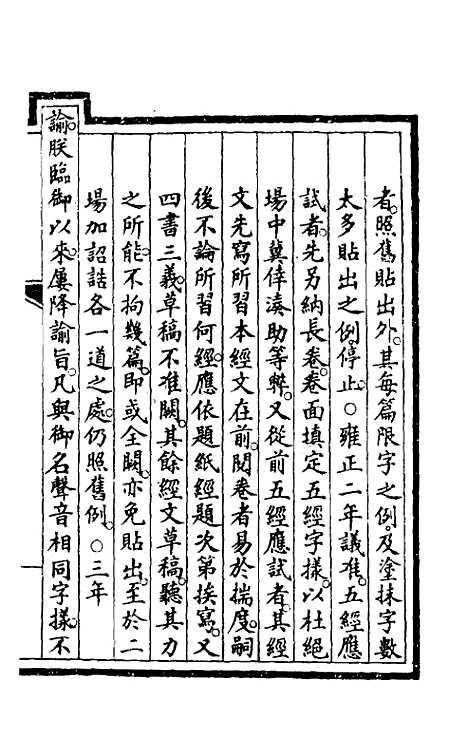 者。照舊貼出外。其每篇限字之例。及塗抹字數
太多貼出之例。停止。○雍正二年議准。五經應
試者。先另納長卷。卷面填定五經字樣。以杜絕
場中冀倖湊助等弊。又從前五經應試者。其經
文先寫所習本經文在前。閱卷者易於揣度。嗣
後不論所習何經。應依題紙經題次第挨寫。又
四書三義。草稿不准闕。其餘經文草稿。聽其力
之所能。不拘幾篇。即或全闕。亦免貼出。至於二
場加詔誥各一道之處。仍照舊例。○三年
諭。朕臨御以來。屢降諭旨。凡與御名聲音相同字樣。不